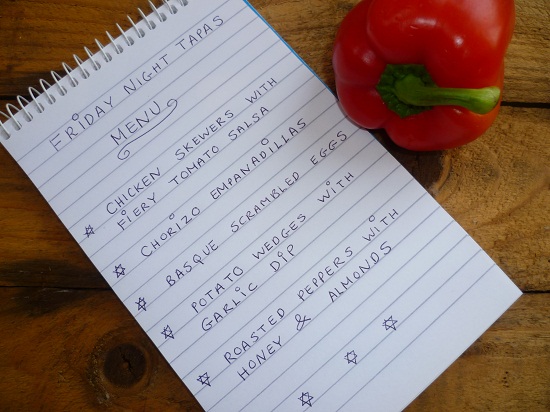 FRIDAY NIGHT TAPAS
MENU
CHICKEN SKEWERS WITH
FIERY TOMATO SALSA
CHORIZO EMPANADILLAS
BASQUE SCRAMBLED EGGS
POTATO WEDGES WITH
GARLIC DIP
ROASTED PEPPERS WITH
HONEY & ALMONDS